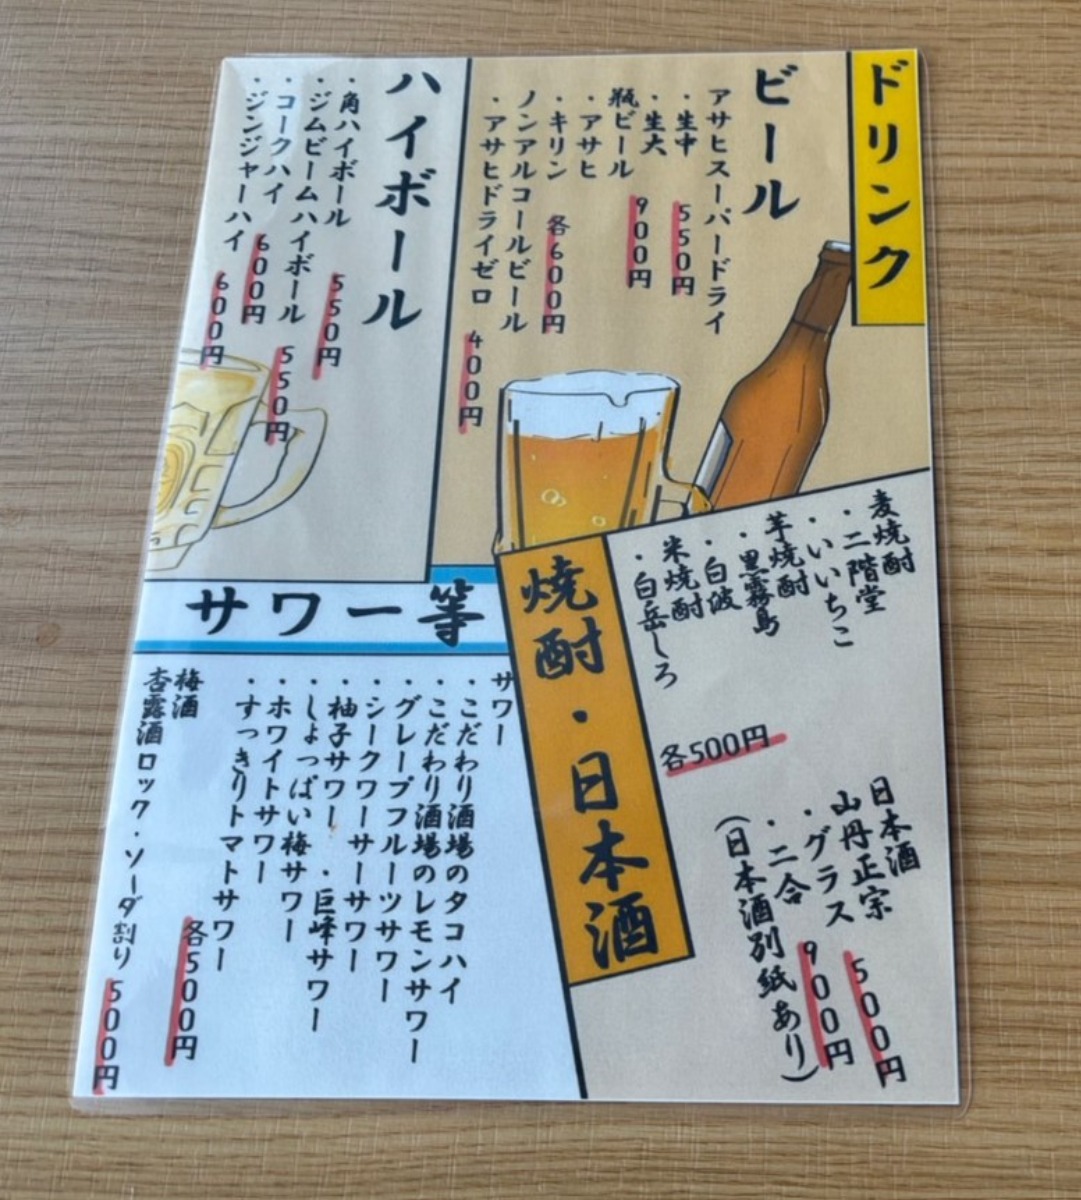 ドリンク
ビール
アサヒスーパードライ
・生中 550円
・生大 900円
瓶ビール
・アサヒ
・キリン 各600円
ノンアルコールビール
・アサヒドライゼロ 400円
ハイボール
・角ハイボール 550円
・ジムビームハイボール 550円
・コークハイ 600円
・ジンジャーハイ 600円
焼酎・日本酒
麦焼酎
・二階堂
・いいちこ
芋焼酎
・黒霧島
・白波
米焼酎
・白岳しろ
各500円
日本酒
山丹正宗
・グラス 500円
・二合 900円
(日本酒別紙あり)
サワー等
サワー
・こだわり酒場のタコハイ
・こだわり酒場のレモンサワー
・グレープフルーツサワー
・シークワーサーサワー
・柚子サワー ・巨峰サワー
・しょっぱい梅サワー
・ホワイトサワー
・すっきりトマトサワー
各500円
梅酒
杏露酒ロック・ソーダ割り 500円